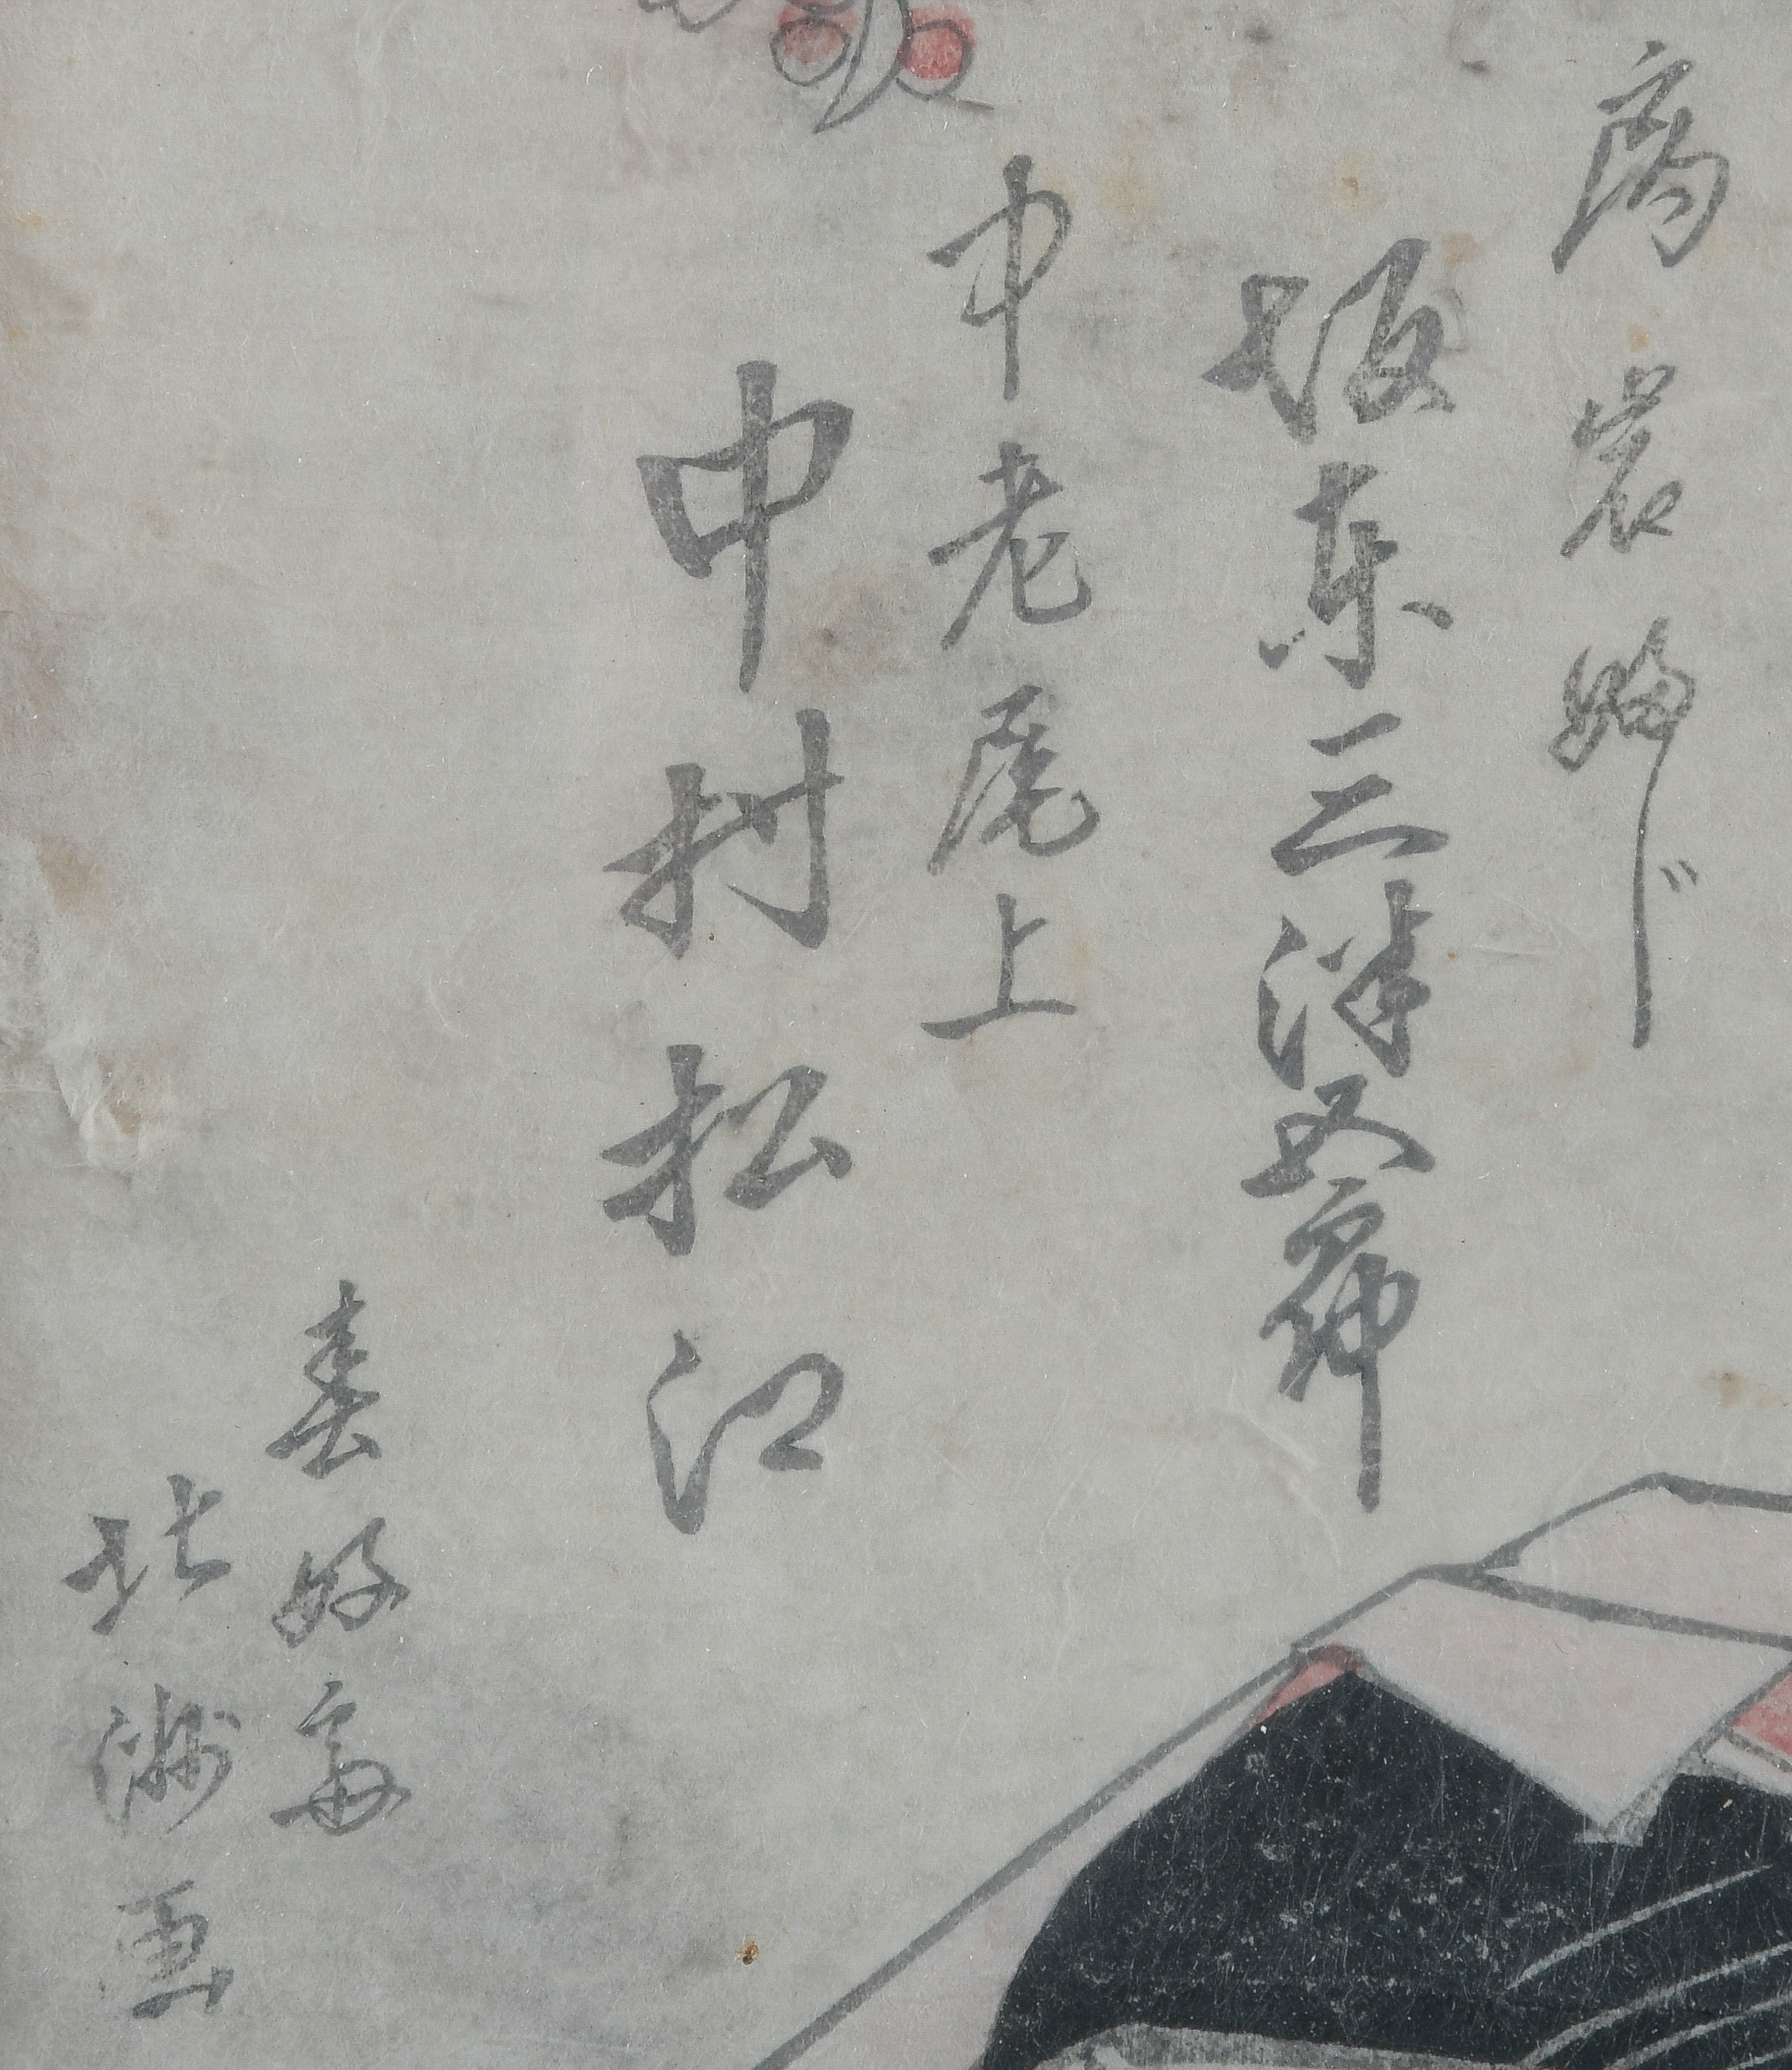 局岩ふじ
坂東三津五郎
中老尾上
中村松江
春好斎
北洲画